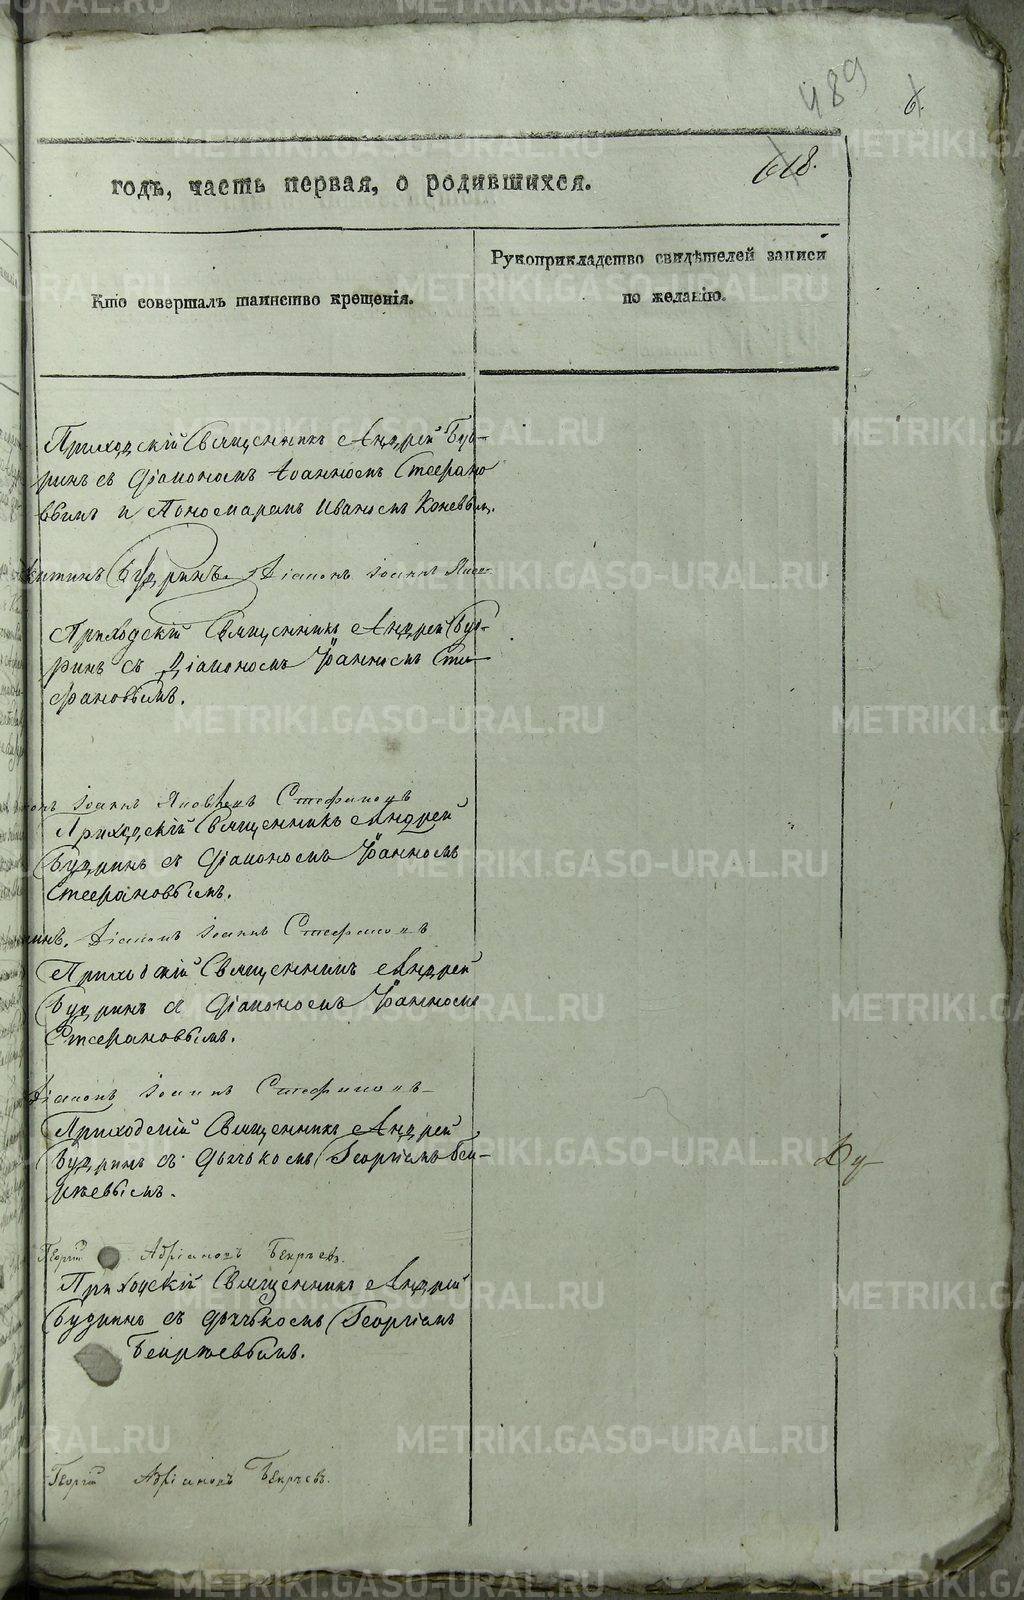 489
6.
618.
годъ, часть первая, о родившихся.
Кто совершалъ таинство крещенія.
Рукоприкладство свидѣтелей записи
по желанію.
Приходскій Священникъ Андрей Буд-
ринъ съ Діакономъ Іоанномъ Стефано
вымъ и Пономаремъ Иваномъ Коневым.
Будринъ. Діаконъ Іоаннъ
Приходскій Священникъ Андрей Буд-
ринъ съ Діакономъ Іоанномъ Сте-
фановымъ.
Іоаннъ Яковлевъ Стефановъ
Приходскій Священникъ Андрей
Будринъ съ Діакономъ Іоанномъ
Стефановымъ.
Діаконъ Іоаннъ Стефановъ
Приходскій Священникъ Андрей
Будринъ съ Діакономъ Іоанномъ
Стефановымъ.
Діаконъ Іоаннъ Стефановъ
Приходскій Священникъ Андрей
Будринъ съ дьячькомъ Георгіемъ Бек-
рѣевымъ.
Георгій Адріановъ Бекрѣевъ.
Приходскій Священникъ Андрей
Будринъ съ дьячькомъ Георгіемъ
Бекрѣевымъ.
Георгій Адріановъ Бекрѣевъ.
METRIKI.GASO-URAL.RU